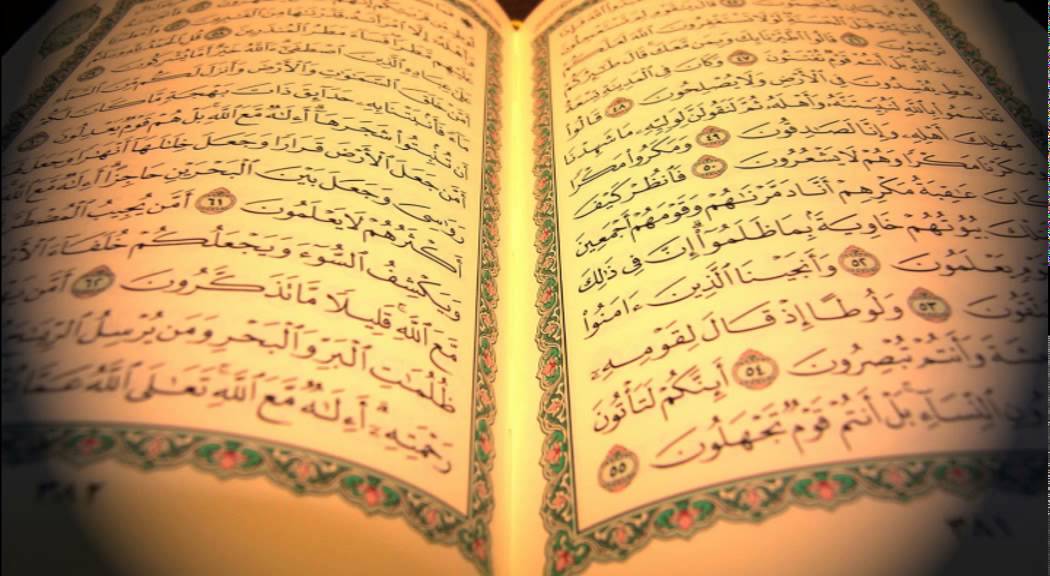 قَالُوا۟ ٱطَّيَّرْنَا بِكَ وَبِمَن مَّعَكَ قَالَ طَٰٓئِرُكُمْ
عِندَ ٱللَّهِ بَلْ أَنتُمْ قَوْمٌ تُفْتَنُونَ ٤٧ وَكَانَ فِى ٱلْمَدِينَةِ تِسْعَةُ
رَهْطٍ يُفْسِدُونَ فِى ٱلْأَرْضِ وَلَا يُصْلِحُونَ ٤٨ قَالُوا۟
تَقَاسَمُوا۟ بِٱللَّهِ لَنُبَيِّتَنَّهُۥ وَأَهْلَهُۥ ثُمَّ لَنَقُولَنَّ لِوَلِيِّهِۦ مَا شَهِدْنَا
مَهْلِكَ أَهْلِهِۦ وَإِنَّا لَصَٰدِقُونَ ٤٩ وَمَكَرُوا۟ مَكْرًا
وَمَكَرْنَا مَكْرًا وَهُمْ لَا يَشْعُرُونَ ٥٠ فَٱنظُرْ كَيْفَ
كَانَ عَٰقِبَةُ مَكْرِهِمْ أَنَّا دَمَّرْنَٰهُمْ وَقَوْمَهُمْ أَجْمَعِينَ
بُيُوتُهُمْ خَاوِيَةًۢ بِمَا ظَلَمُوٓا۟ إِنَّ فِى ذَٰلِكَ
يَعْلَمُونَ ٥٢ وَأَنجَيْنَا ٱلَّذِينَ ءَامَنُوا۟
٥٣ وَلُوطًا إِذْ قَالَ لِقَوْمِهِۦٓ
وَأَنتُمْ تُبْصِرُونَ ٥٤ أَئِنَّكُمْ لَتَأْتُونَ
ٱلنِّسَآءِ بَلْ أَنتُمْ قَوْمٌ تَجْهَلُونَ ٥٥
٣٨١
عَلَيْهِم مَّطَرًا فَسَآءَ مَطَرُ ٱلْمُنذَرِينَ ٥٨
عَلَىٰ عِبَادِهِ ٱلَّذِينَ ٱصْطَفَىٰٓ ءَآللَّهُ خَيْرٌ أَمَّا يُشْرِكُونَ ٥٩
أَمَّنْ خَلَقَ ٱلسَّمَٰوَٰتِ وَٱلْأَرْضَ وَأَنزَلَ لَكُم مِّنَ ٱلسَّمَآءِ
مَآءً فَأَنۢبَتْنَا بِهِۦ حَدَآئِقَ ذَاتَ بَهْجَةٍ مَّا كَانَ لَكُمْ
أَن تُنۢبِتُوا۟ شَجَرَهَآ أَءِلَٰهٌ مَّعَ ٱللَّهِ بَلْ هُمْ قَوْمٌ يَعْدِلُونَ ٦٠
أَمَّن جَعَلَ ٱلْأَرْضَ قَرَارًا وَجَعَلَ خِلَٰلَهَآ أَنْهَٰرًا وَجَعَلَ
رَوَٰسِىَ وَجَعَلَ بَيْنَ ٱلْبَحْرَيْنِ حَاجِزًا أَءِلَٰهٌ مَّعَ ٱللَّهِ
أَكْثَرُهُمْ لَا يَعْلَمُونَ ٦١ أَمَّن يُجِيبُ ٱلْمُضْطَرَّ
وَيَكْشِفُ ٱلسُّوٓءَ وَيَجْعَلُكُمْ خُلَفَآءَ ٱلْأَرْضِ
مَّعَ ٱللَّهِ قَلِيلًا مَّا تَذَكَّرُونَ ٦٢ أَمَّن
ظُلُمَٰتِ ٱلْبَرِّ وَٱلْبَحْرِ وَمَن يُرْسِلُ ٱلرِّيَٰحَ
رَحْمَتِهِۦٓ أَءِلَٰهٌ مَّعَ ٱللَّهِ تَعَٰلَى ٱللَّهُ عَمَّا
٣٨٢